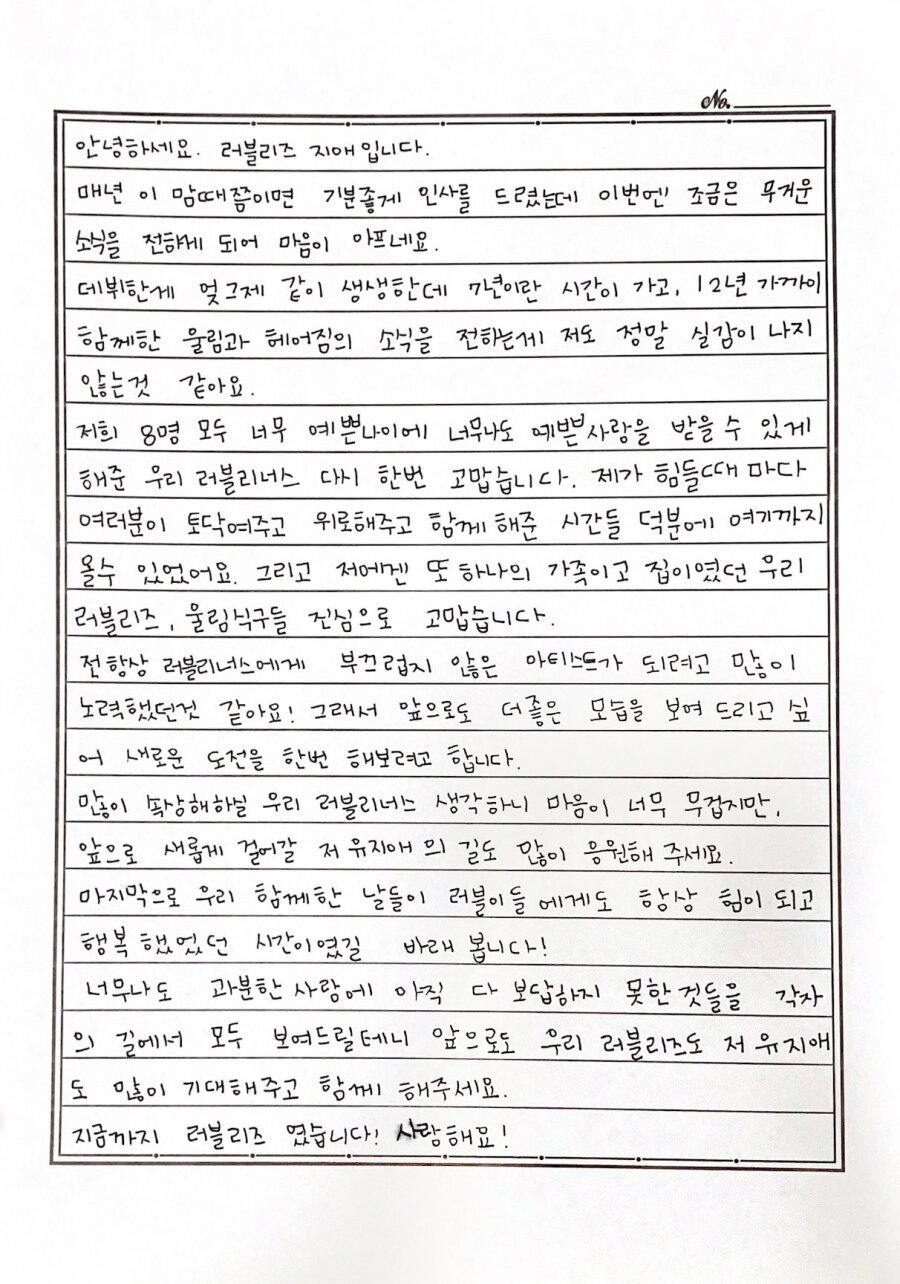 No.
안녕하세요. 러블리즈 지애입니다.
매년 이 맘때쯤이면 기분좋게 인사를 드렸는데 이번엔 조금은 무거운
소식을 전하게 되어 마음이 아프네요.
데뷔한게 엊그제 같이 생생한데 7년이란 시간이 가고, 12년 가까이
함께한 울림과 헤어짐의 소식을 전하는게 저도 정말 실감이 나지
않는것 같아요.
저희 8명 모두 너무 예쁜나이에 너무나도 예쁜사랑을 받을수 있게
해준 우리 러블리너스 다시 한번 고맙습니다. 제가 힘들때 마다
여러분이 토닥여주고 위로해주고 함께 해준 시간들 덕분에 여기까지
올수 있었어요. 그리고 저에겐 또 하나의 가족이고 집이였던 우리
러블리즈, 울림식구들 진심으로 고맙습니다.
전 항상 러블리너스에게 부끄럽지 않은 아티스트가 되려고 많이
노력했던것 같아요! 그래서 앞으로도 더 좋은 모습을 보여 드리고 싶
어 새로운 도전을 한번 해보려고 합니다.
많이 속상해하실 우리 러블리너스 생각하니 마음이 너무 무겁지만,
앞으로 새롭게 걸어갈 저 유지애 의 길도 많이 응원해 주세요.
마지막으로 우리 함께한 날들이 러블이들 에게도 항상 힘이 되고
행복 했었던 시간이였길 바래 봅니다!
너무나도 과분한 사랑에 아직 다 보답하지 못한 것들을 각자
의 길에서 모두 보여드릴테니 앞으로도 우리 러블리즈도 저 유지애
도 많이 기대해주고 함께 해주세요.
지금까지 러블리즈 였습니다! 사랑해요!